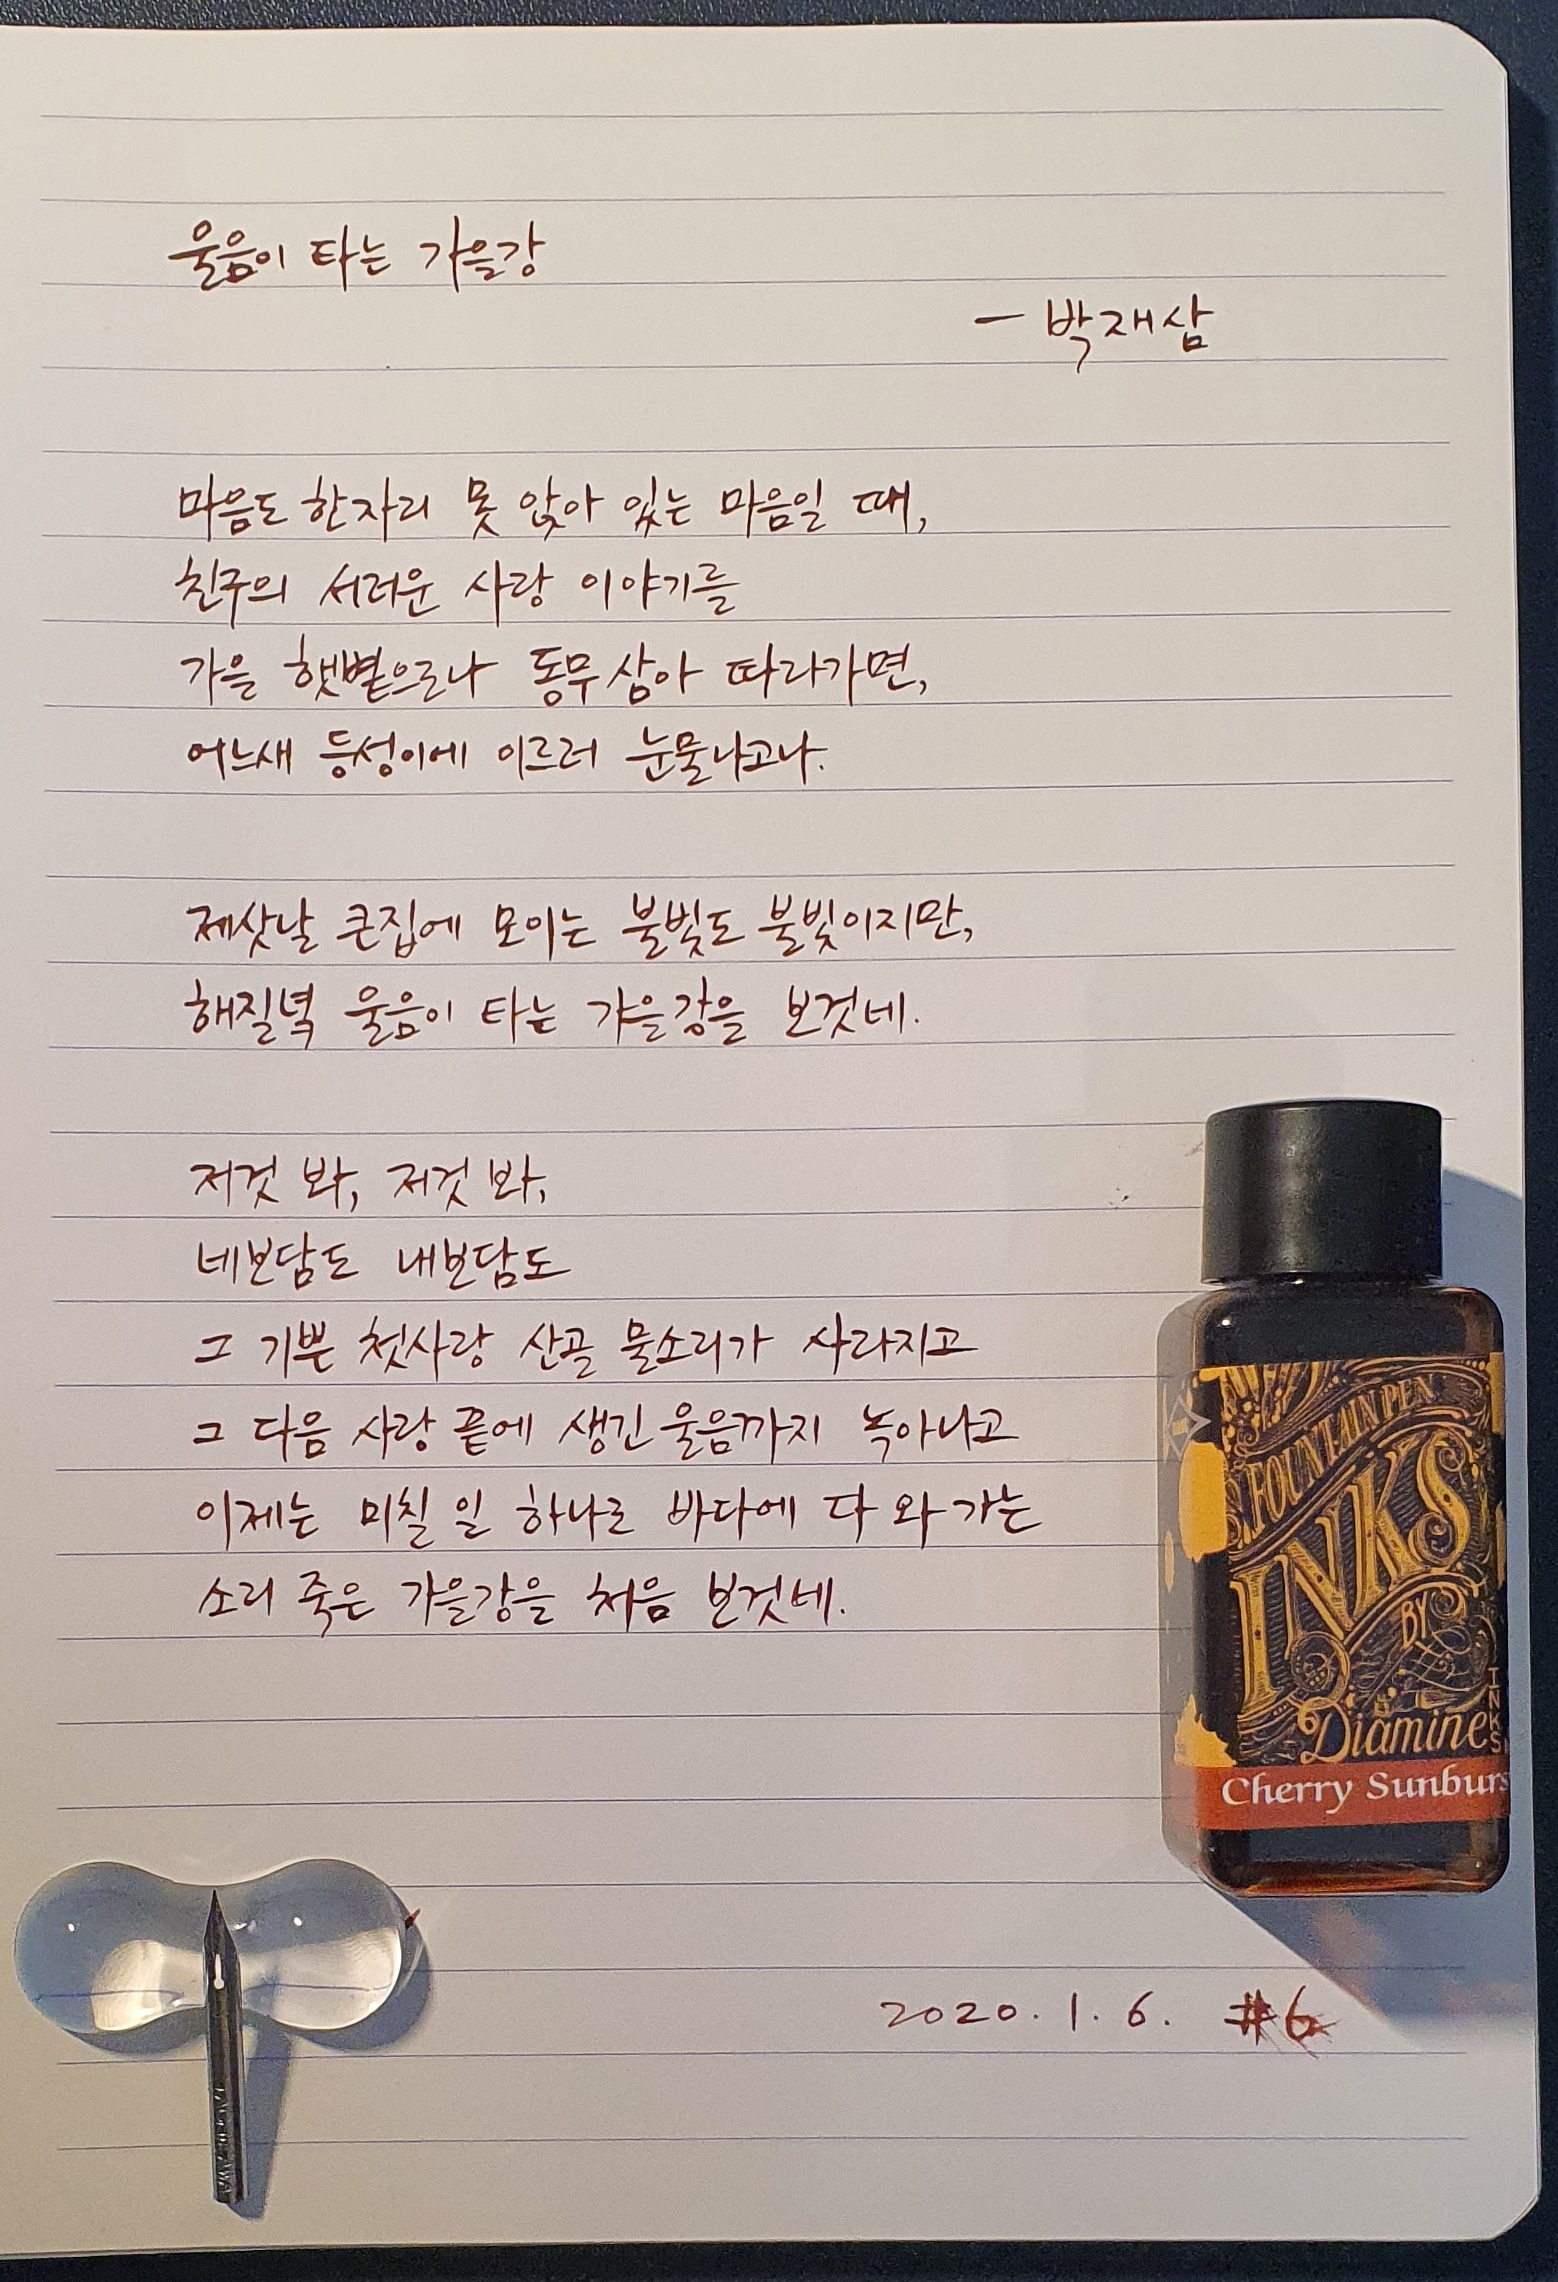 울음이 타는 가을강
- 박재삼
마음도 한자리 못 앉아 있는 마음일 때,
친구의 서러운 사랑 이야기를
가을 햇볕으로나 동무삼아 따라가면,
어느새 등성이에 이르러 눈물나고나.
제삿날 큰집에 모이는 불빛도 불빛이지만,
해질녘 울음이 타는 가을강을 보것네.
저것 봐, 저것 봐,
네보담도 내보담도
그 기쁜 첫사랑 산골 물소리가 사라지고
그 다음 사랑 끝에 생긴 울음까지 녹아나고
이제는 미칠 일 하나로 바다에 다 와 가는
소리 죽은 가을강을 처음 보것네.
FOUNTAIN PEN
INKS
BY
Diamine
Cherry Sunburs
INKS
2020. 1. 6. #6